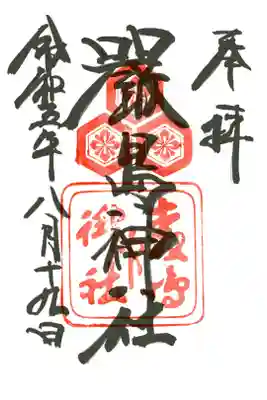 奉拝
嚴島神社
嚴島神社
令和五年八月十九日